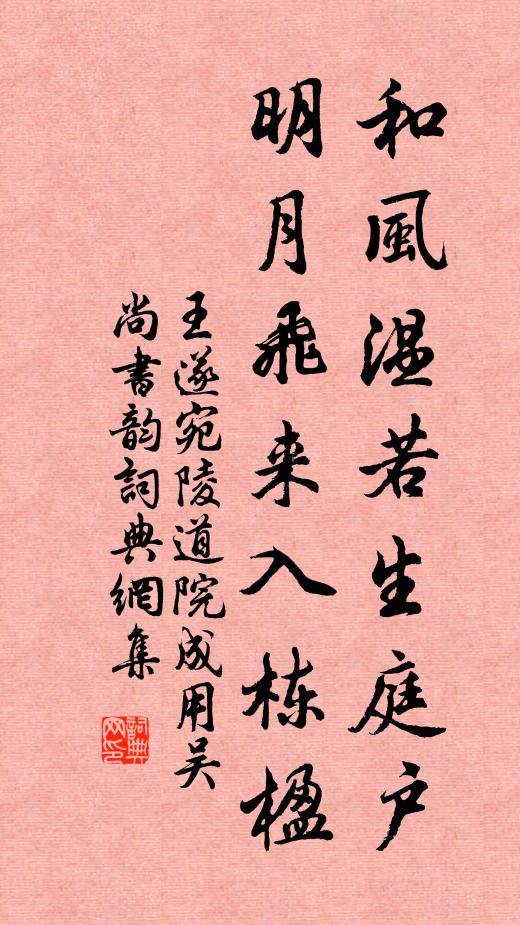 和風温若生庭户
明月飛来入栋楹
王遂宛陵道院成用吴
尚書韵詞典網集
詞典网印